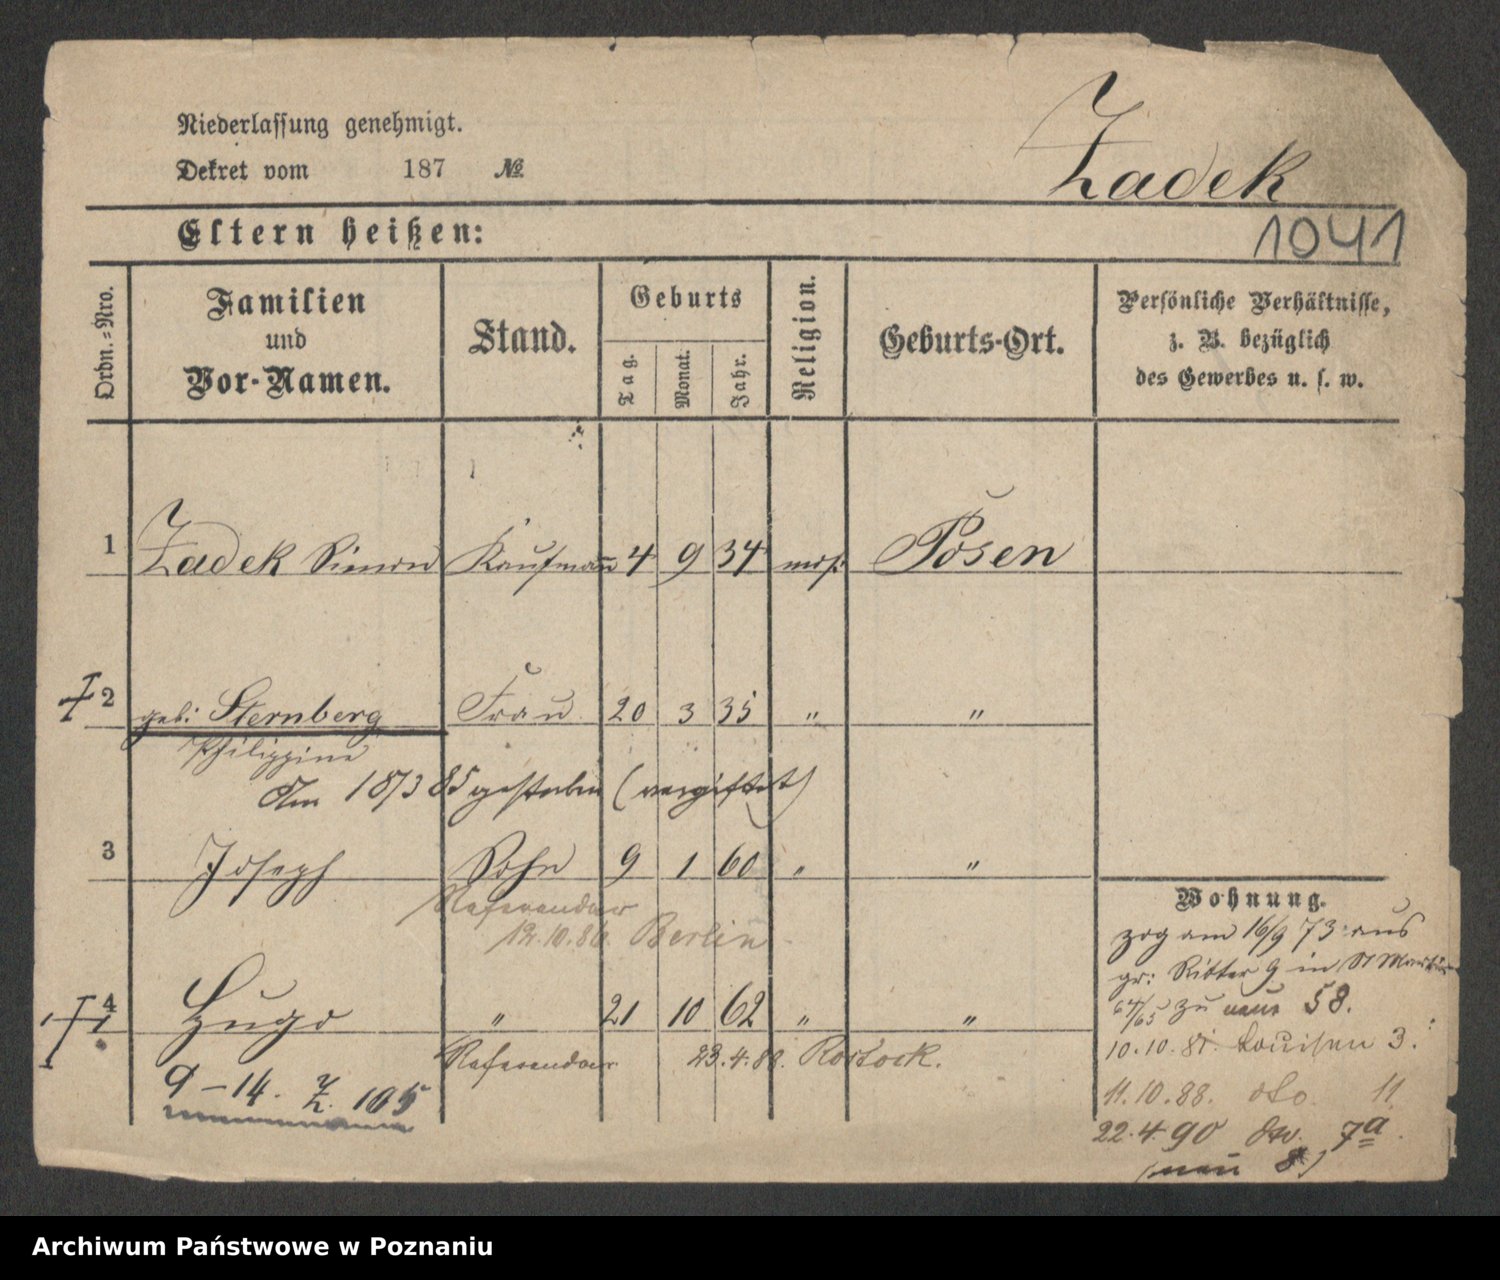 Niederlassung genehmigt.
Dekret vom 187 №
Zadek
Eltern heißen:
1041
Ordn.=Nro.
Familien und Vor-Namen.
Stand.
Geburts
Tag. Monat. Jahr.
Religion.
Geburts-Ort.
Persönliche Verhältnisse, z. B. bezüglich des Gewerbes u. s. w.
1 Zadek Simon Kaufmann 4 9 34 mos. Posen
2 geb: Sternberg Frau 20 3 35 " "
Philippine
Am 18/3 85 gestorben (vergiftet)
3 Joseph Sohn 9 1 60 " "
Referendar
12.10.86. Berlin
4 Hugo " 21 10 62 " "
Referendar 23.4.88. Rostock.
9-14. Z. 105
Wohnung.
zog am 16/9 73 aus
gr: Ritter 9 in St Martin
64/65 zu neue 58.
10.10.81. Louisen 3.
11.10.88. dto. 11
22.4.90 do. 7a
(neu 8)
Archiwum Państwowe w Poznaniu